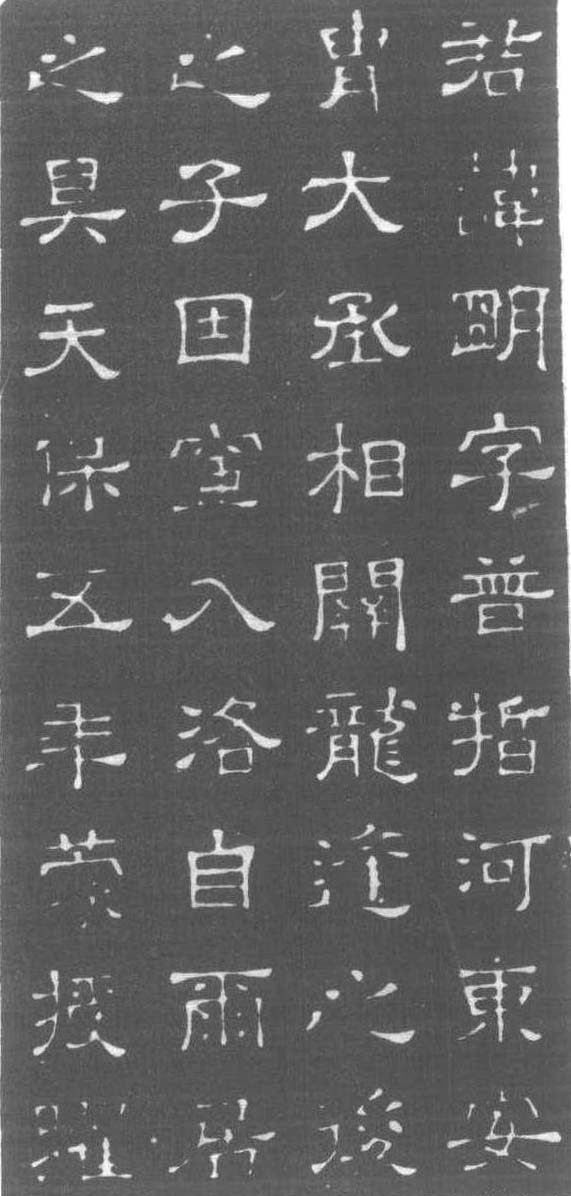 君諱明字普哲河東安
胄大丞相關龍逄之後
之子因宦入洛自爾居
之具天保五年蒙授羅